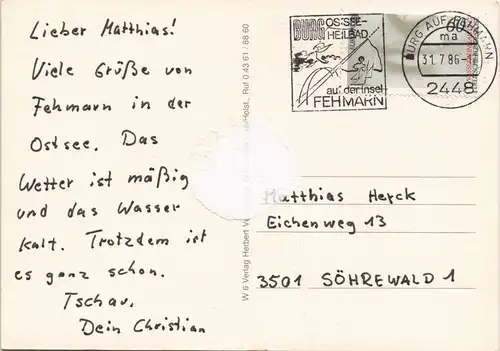 Lieber Matthias!
Viele Grüße von
Fehmarn in der
Ostsee. Das
Wetter ist mäßig
und das Wasser
kalt. Trotzdem ist
es ganz schön.
Tschau,
Dein Christian
W 6 Verlag Herbert
/Holst., Ruf 0 43 61 / 88 60
BURG OSTSEE-
HEILBAD
auf der Insel
FEHMARN
60
BURG AUF FEHMARN
ma
31.7.86-
2448
Matthias Herck
Eichenweg 13
3501 SÖHREWALD 1